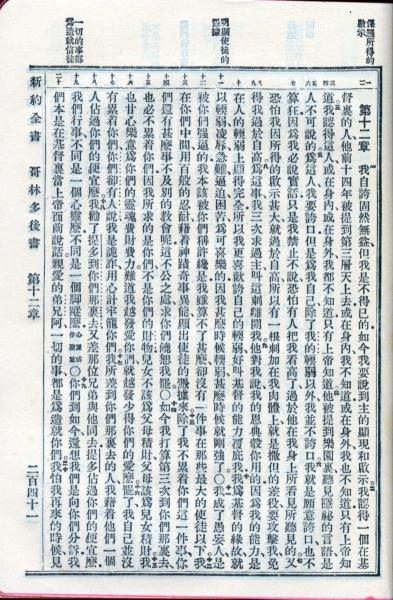 保羅所得的
啟示
明顯使徒的
憑據
一切的事都
為造就信徒
第十二章 我自誇固然無益但我是不得已的如今我要說到主的顯現和啟示我認得一個在基
督裏的人他前十四年被提到第三層天上去或在身內我不知道或在身外我也不知道只有上帝知
道我認得這人或在身內或在身外我都不知道只有上帝知道他被提到樂園裏聽見隱祕的言語是
人不可說的為這人我要誇口但是為我自己除了我的輭弱以外我並不誇口我就是願意誇口也不
算狂因為我必說實話只是我禁止不說恐怕有人把我看高了過於他在我身上所看見所聽見的又
恐怕我因所得的啟示甚大就過於自高所以有一根刺加在我肉體上就是撒但的差役要攻擊我免
得我過於自高為這事我三次求過主叫這刺離開我他對我說我的恩典彀你用的因為我的能力是
在人的輭弱上顯得完全所以我更喜歡誇自己的輭弱好叫基督的能力覆庇我我為基督的緣故就
以輭弱凌辱急難逼迫困苦為可喜樂的因我甚麼時候輭弱甚麼時候就剛強了○我成了愚妄人是
被你們強逼的我本該被你們稱許纔是我雖算不了甚麼卻沒有一件事在那些最大的使徒以下我
在你們中間用百般的忍耐藉着神蹟奇事異能顯出使徒的憑據來除了我不累着你們這一件事你
們還有甚麼事不及別的教會呢這不公之處求你們饒恕我罷○如今我打算第三次到你們那裏去
也必不累着你們因我所求的是你們不是你們的財物兒女不該為父母積財父母該為兒女積財我
也甘心樂意為你們的靈魂費財費力難道我越發愛你們就越發少得你們的愛麼罷了我自己並沒
有累着你們你們卻有人說我是詭詐用心計牢籠你們我所差到你們那裏去的人我藉着他們一個
人佔過你們的便宜麼我勸了提多到你們那裏去又差那位兄弟與他同去提多佔過你們的便宜麼
我們行事不同是一個心靈麼不同是一個脚蹤麼○你們到如今還想我們是向你們分訴我
們本是在基督裏當上帝面前說話親愛的弟兄阿一切的事都是為造就你們我怕我再來的時候見
新約全書 哥林多後書 第十二章 二百四十一